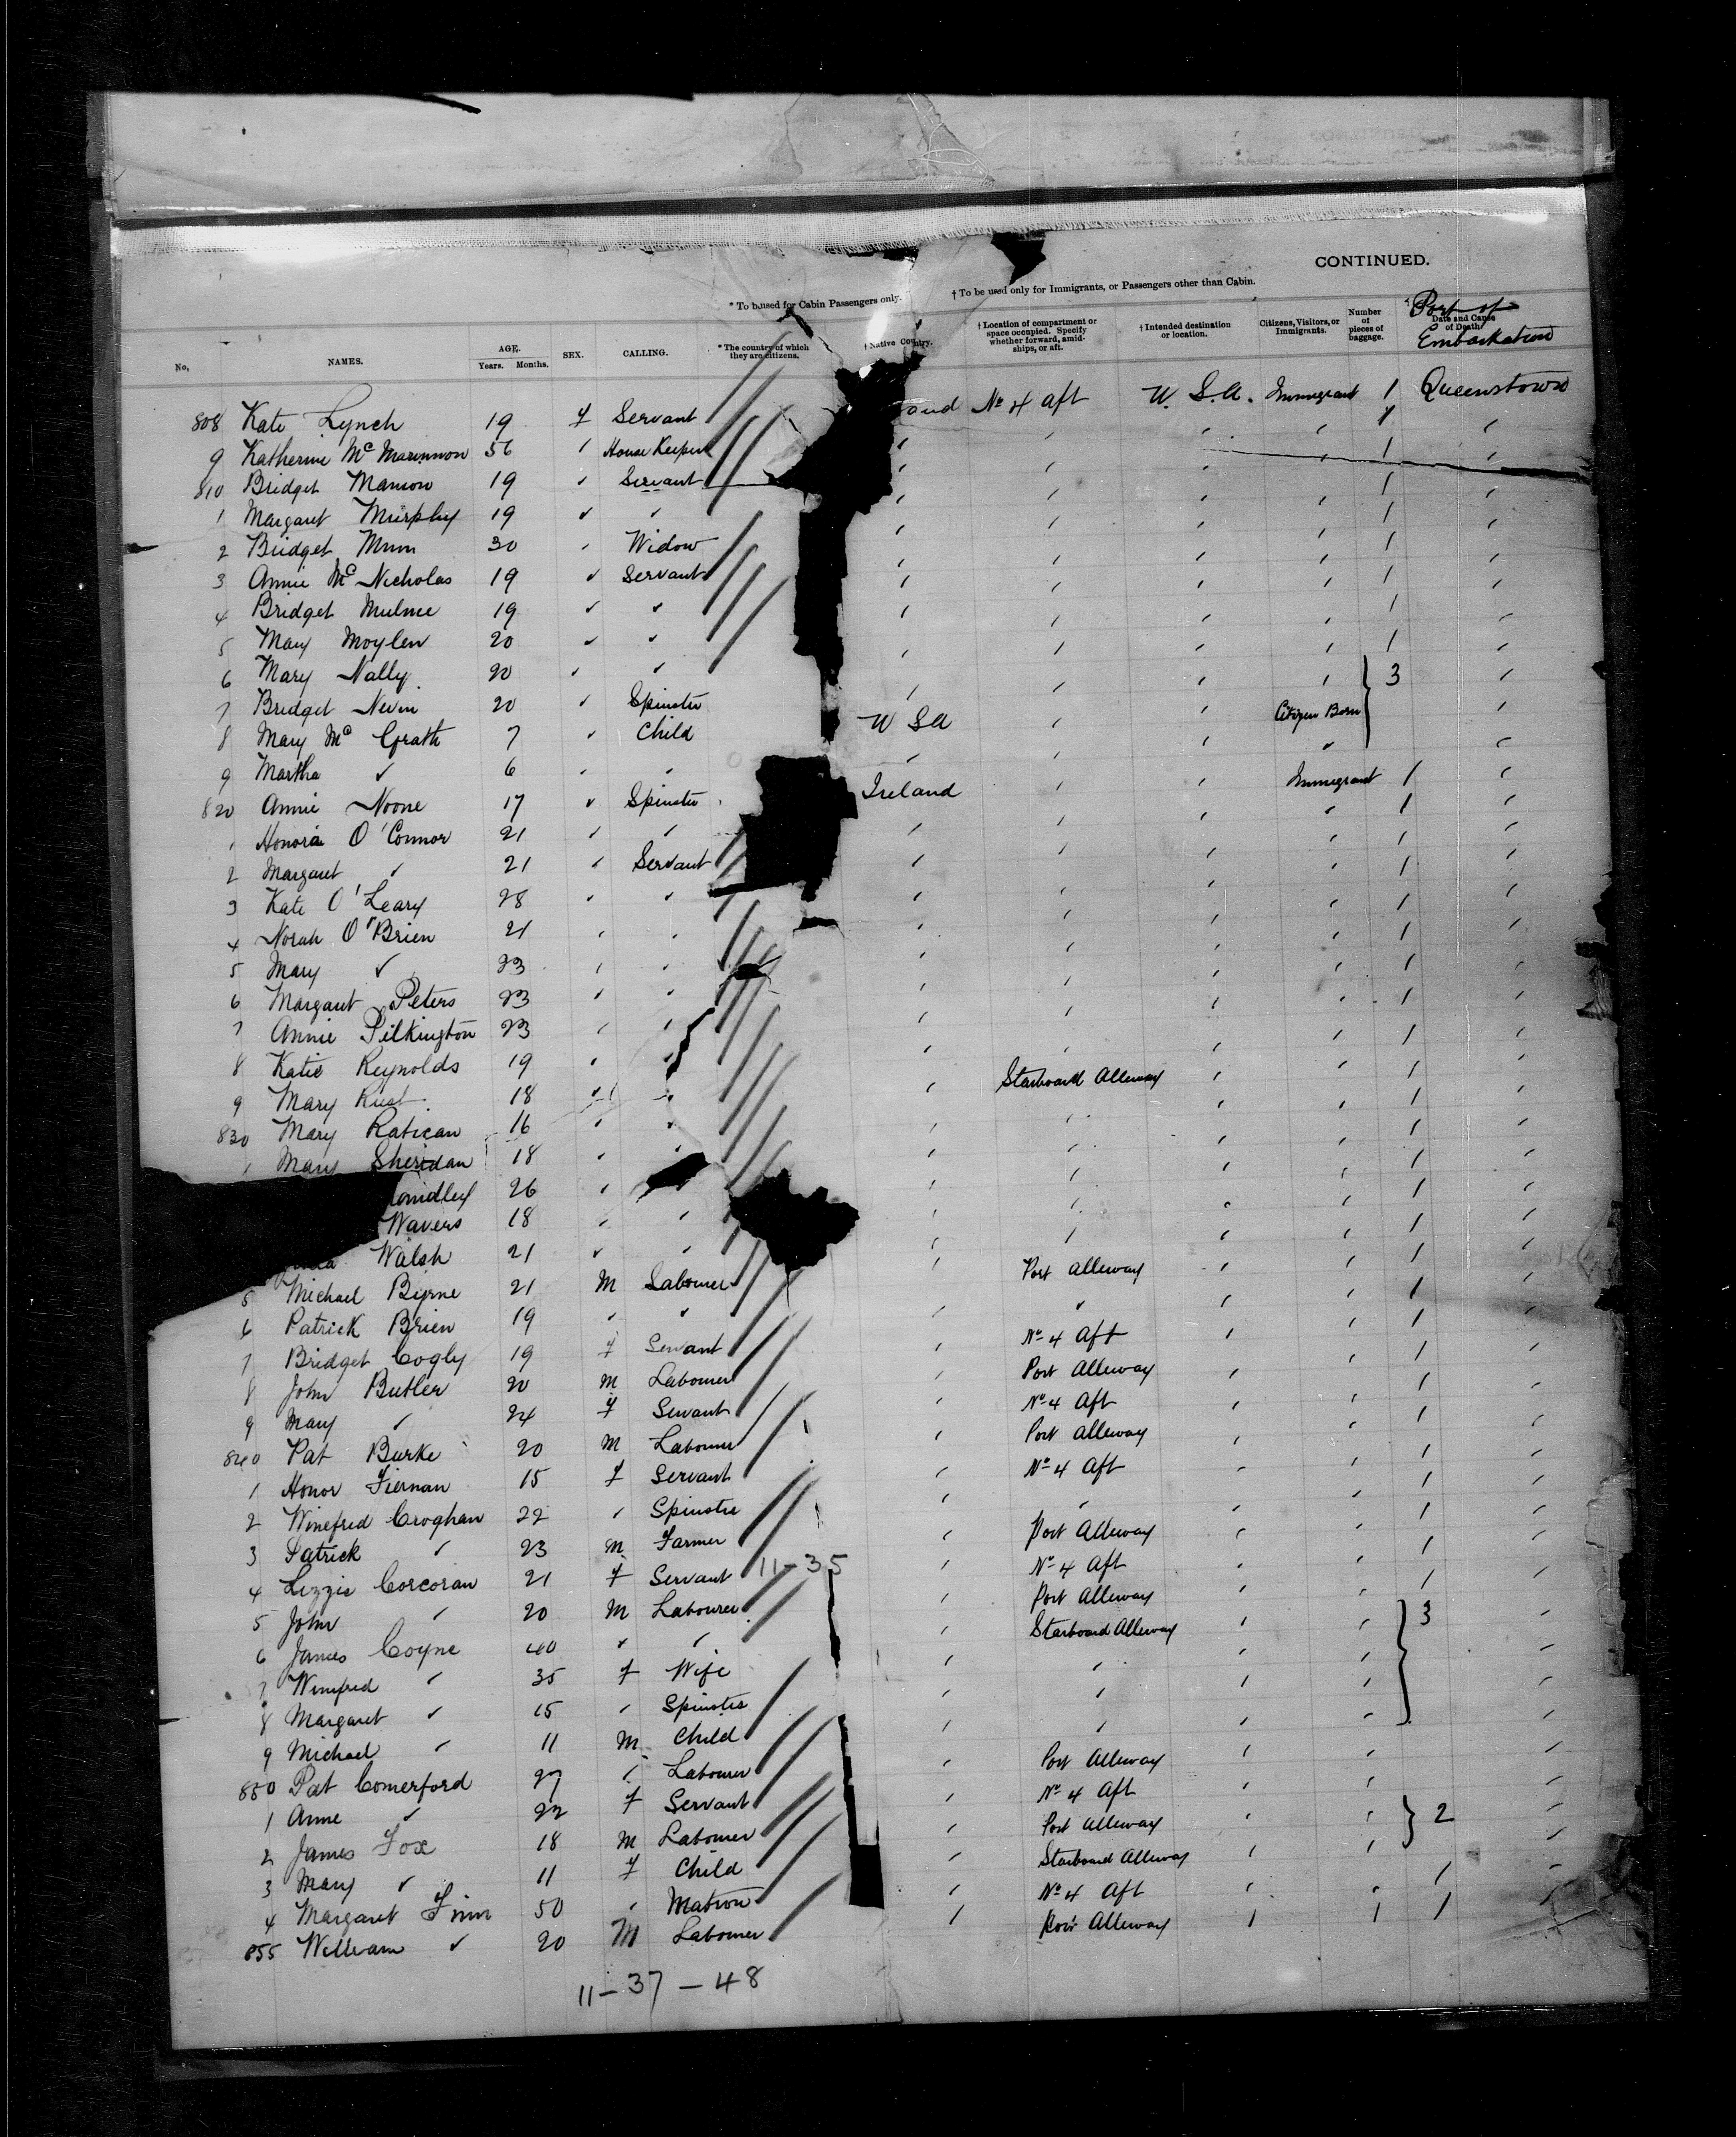 CONTINUED.
* To be used for Cabin Passengers only. † To be used only for Immigrants, or Passengers other than Cabin.
No. NAMES. AGE. Years. Months. SEX. CALLING. * The country of which they are citizens. † Native Country. † Location of compartment or space occupied. Specify whether forward, amidships, or aft. † Intended destination or location. Citizens, Visitors, or Immigrants. Number of pieces of baggage. Date and Cause of Death. Port of Embarkation
808 Kate Lynch 19 f Servant land No 4 aft U. S. A. Immigrant 1 Queenstown
9 Katherine 56 " House Keeper " " " " 1 "
810 Bridget 19 " Servant " " " " 1 "
1 Margaret Murphy 19 " " " " " " 1 "
2 Bridget 30 " Widow " " " " 1 "
3 Annie Mc Nicholas 19 " Servant " " " " 1 "
4 Bridget 19 " " " " " " 1 "
5 Mary Moylen 20 " " " " " " 1 "
6 Mary Nally 20 " " " " " " 1 "
7 Bridget Nevin 20 " Spinster " " " " } 3 "
8 Mary Mc Grath 7 " Child U S A " " Citizen Born "
9 Martha " 6 " " " " " " "
820 Annie Noone 17 " Spinster Ireland " " Immigrant 1 "
1 Honora O'Connor 21 " " " " " " 1 "
2 Margaret " 21 " Servant " " " " 1 "
3 Kate O'Leary 28 " " " " " " 1 "
4 Norah O'Brien 21 " " " " " " 1 "
5 Mary " 23 " " " " " " 1 "
6 Margaret Peters 23 " " " " " " 1 "
7 Annie Pilkington 23 " " " " " " 1 "
8 Katie Reynolds 19 " " " " " " 1 "
9 Mary 18 " " " Starboard Alleway " " 1 "
830 Mary Ratican 16 " " " " " " 1 "
1 Mary Sheridan 18 " " " " " " 1 "
26 " " " " " " 1 "
Wavers 18 " " " " " " 1 "
Walsh 21 " " " " " " 1 "
5 Michael Byrne 21 M Labourer " Port Alleway " " 1 "
6 Patrick Brien 19 " " " " " " 1 "
7 Bridget Cogly 19 f Servant " No 4 Aft " " 1 "
8 John Butler 20 M Labourer " Port Alleway " " 1 "
9 Mary " 24 f Servant " No 4 Aft " " 1 "
840 Pat Burke 20 M Labourer " Port Alleway " " 1 "
1 Honor Tiernan 15 f Servant " No 4 Aft " " 1 "
2 Winefred Croghan 22 " Spinster " " " " 1 "
3 Patrick " 23 M Farmer " Port Alleway " " 1 "
4 Lizzie Corcoran 21 f Servant 11-35 " No 4 Aft " " 1 "
5 John " 20 M Labourer " Port Alleway " " 1 "
6 James Coyne 40 " " " Starboard Alleway " " } 3 "
7 Winifred " 35 f Wife " " " " "
8 Margaret " 15 " Spinster " " " " "
9 Michael " 11 M Child " " " " "
850 Pat Comerford 27 " Labourer " Port Alleway " " "
1 Anne " 22 f Servant " No 4 Aft " " "
2 James Fox 18 M Labourer " Port Alleway " " } 2 "
3 Mary " 11 f Child " Starboard Alleway " " "
4 Margaret Finn 50 " Matron " No 4 Aft " " 1 "
855 William " 20 M Labourer " Port Alleway " " 1 "
11-37-48